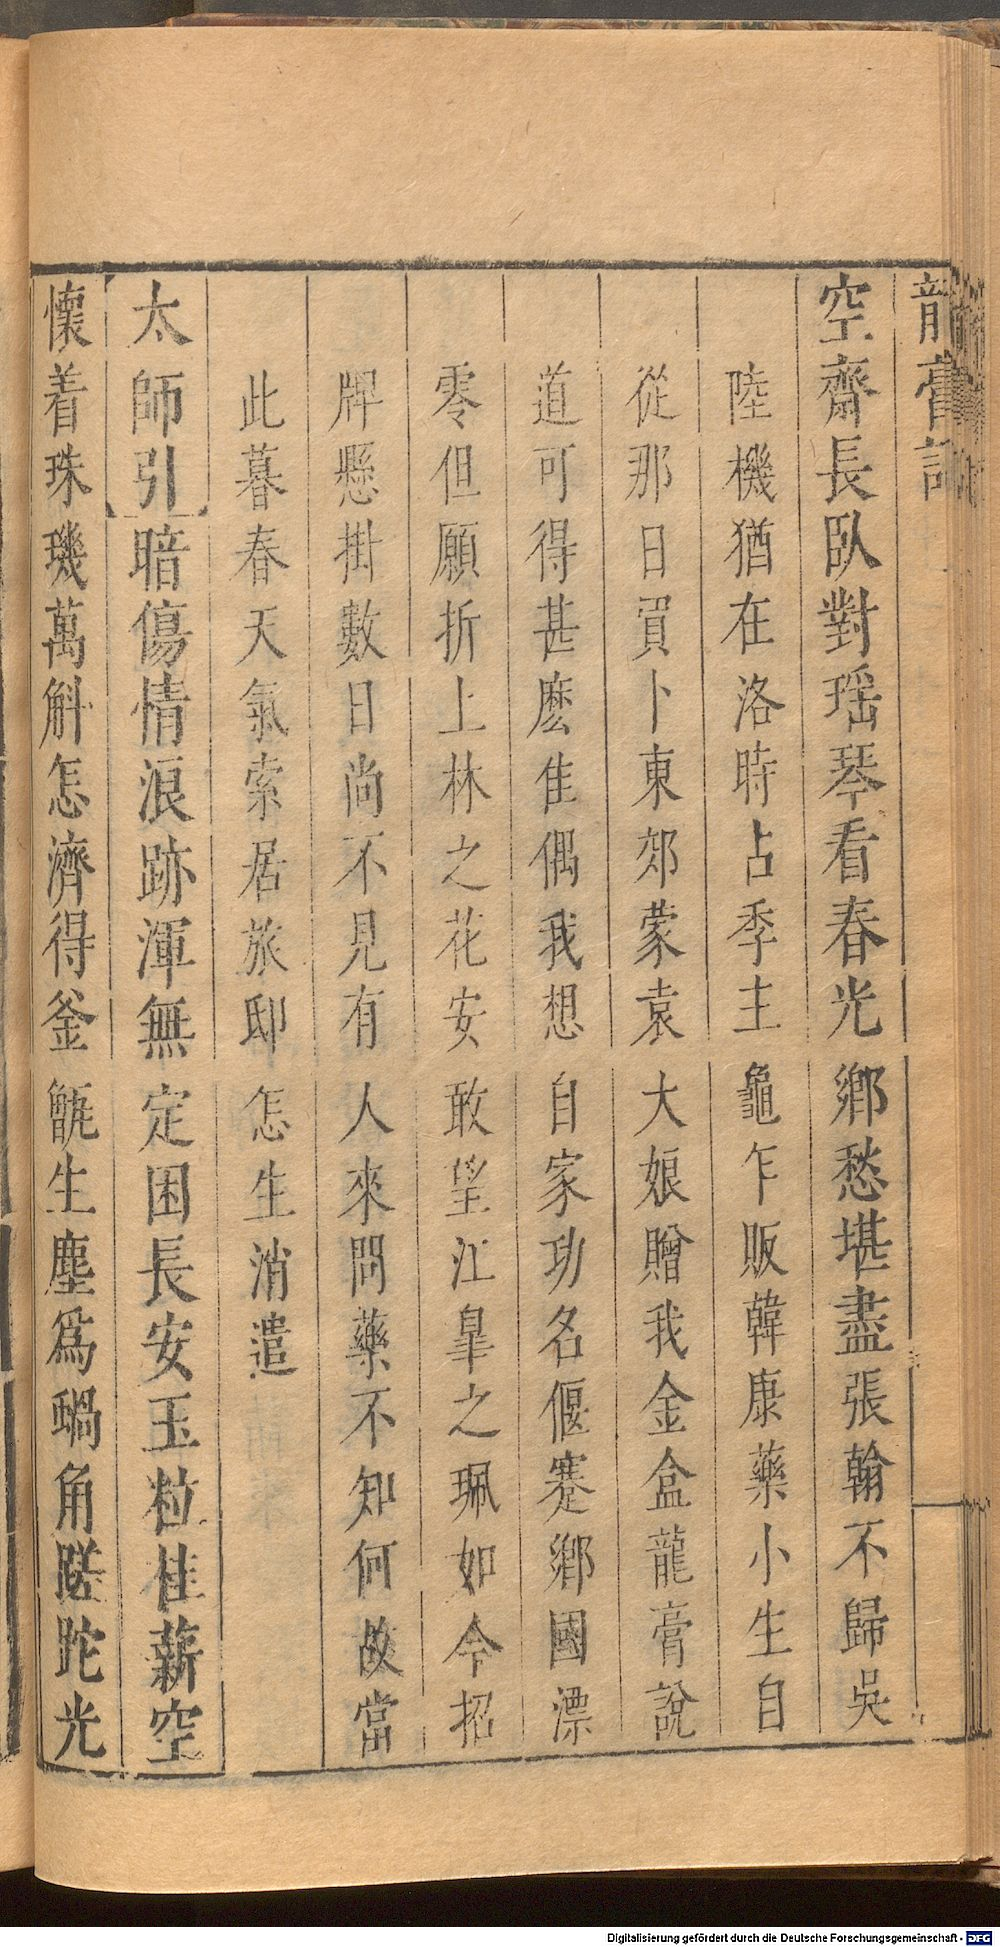 龍膏記
空齋長臥對瑶琴看春光鄉愁堪盡張翰不歸吳
陸機猶在洛時占季主龜乍販韓康藥小生自
從那日買卜東郊蒙袁大娘贈我金盒龍膏說
道可得甚麽佳偶我想自家功名偃蹇鄉國漂
零但願折上林之花安敢望江皐之珮如今招
牌懸掛數日尚不見有人來問藥不知何故當
此暮春天氣索居旅邸怎生消遣
太師引暗傷情浪跡渾無定困長安玉粒桂薪空
懷着珠璣萬斛怎濟得釜甑生塵爲蝸角蹉跎光
Digitalisierung gefördert durch die Deutsche Forschungsgemeinschaft - DFG